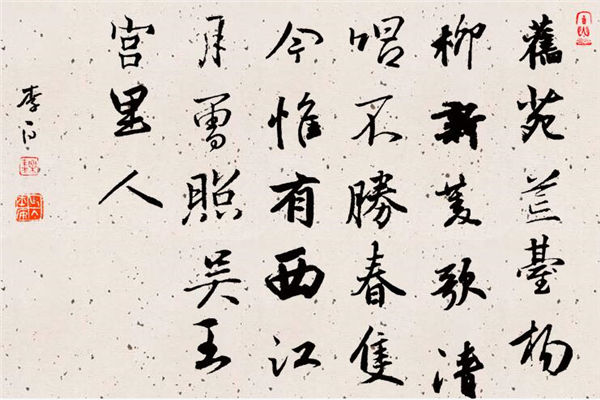 舊苑荒臺楊
柳新菱歌清
唱不勝春隻
今惟有西江
月曾照吳王
宮里人
李白